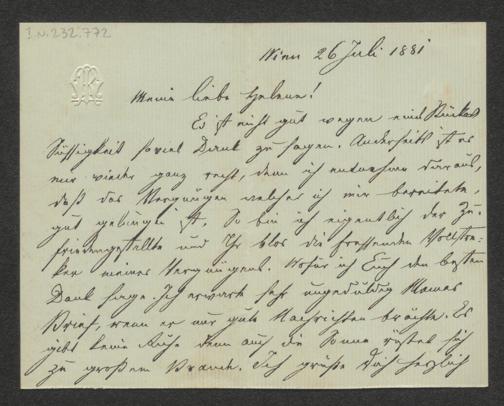 I.N. 232.772
Wien 26 Juli 1881
Meine liebe Helene!
Es ist nicht gut wegen ein Stückerl
Süssigkeit soviel Dank zu sagen. Anderseits ist es
mir wieder ganz recht, denn ich entnehme daraus,
daß das Vergnügen welches ich mir bereitete,
gut gelungen ist. So bin ich eigentlich der Zu-
friedengestellte und Ihr blos die fressenden Vollstre-
cker meines Vergnügens. Wofür ich Euch den besten
Dank sage. Ich erwarte sehr ungeduldig Mamas
Brief, wenn er nur gute Nachrichten brächte. Es
gibt keine Ruhe denn auch die Sonne rüstet sich
zu großem Brande. Ich grüße Dich herzlich